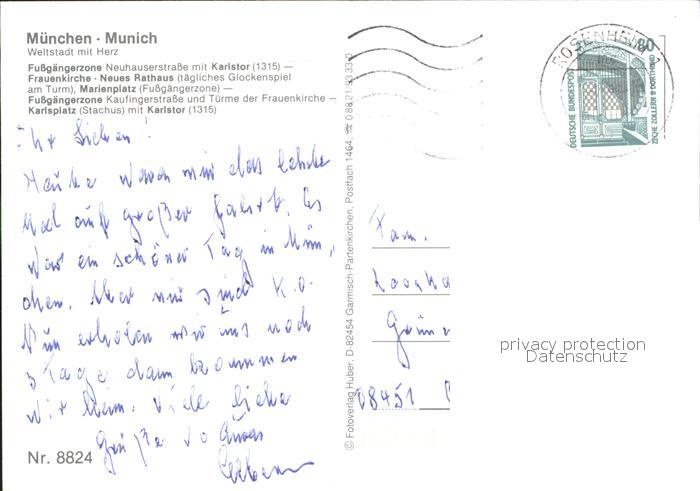 München · Munich
Weltstadt mit Herz
Fußgängerzone Neuhauserstraße mit Karlstor (1315) —
Frauenkirche · Neues Rathaus (tägliches Glockenspiel
am Turm), Marienplatz (Fußgängerzone) —
Fußgängerzone Kaufingerstraße und Türme der Frauenkirche –
Karlsplatz (Stachus) mit Karlstor (1315)
Ihr Lieben!
Heute waren wir das letzte
Mal auf großer Fahrt. Es
war ein schöner Tag in Mün-
chen. Aber wir sind K.O.
Nun erholen wir uns noch
3 Tage dann kommen
wir heim. Viele liebe
Grüße
Nr. 8824
© Fotoverlag Huber, D-82454 Garmisch-Partenkirchen, Postfach 1464
ROSENHEIM
80
DEUTSCHE BUNDESPOST
ZECHE ZOLLERN II DORTMUND
Fam.
08451
privacy protection
Datenschutz